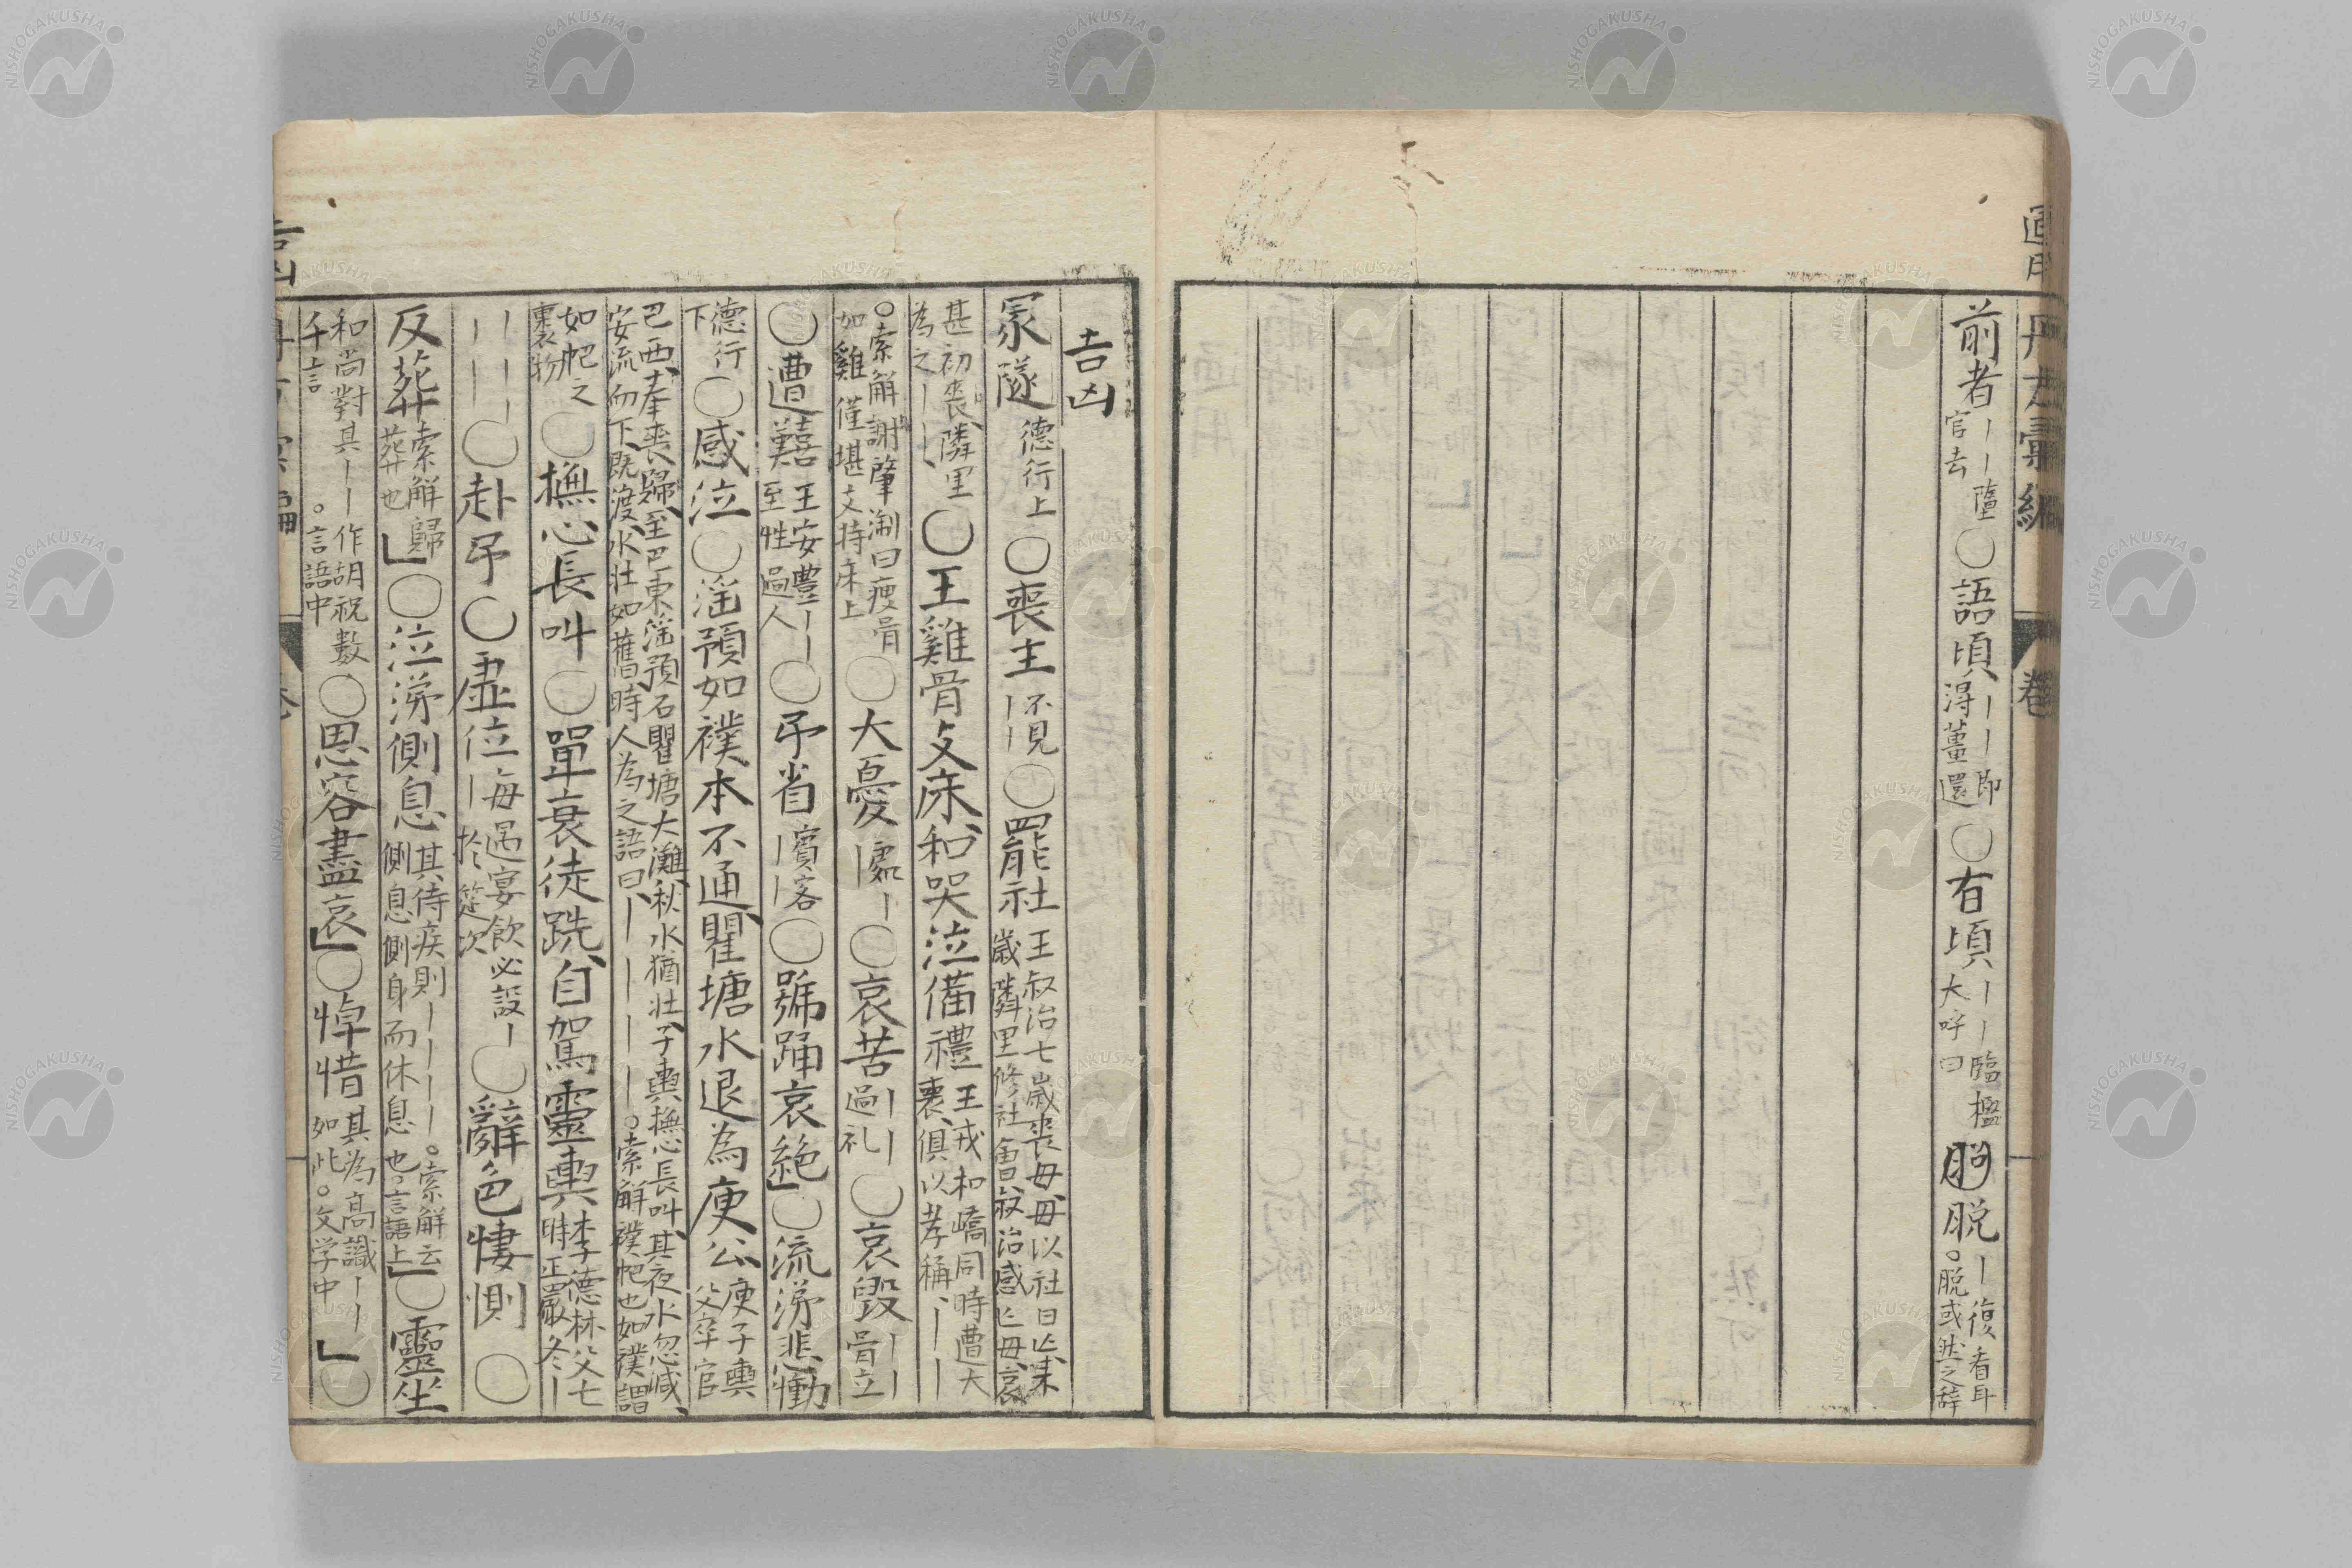 前者｜｜墮官去〇語頃｜｜｜即得薑還〇有頃｜｜臨檻大呼曰 脱｜復看耳。脱或然之辞
吉凶
冢隧德行上〇喪主不見｜｜〇罷社王叔治七歳喪母、母以社日亡、来歳隣里修社會、叔治感亡母、哀
甚初喪、隣里為之｜｜、〇王雞骨支床、和哭泣備禮王戎和嶠同時遭大喪、俱以孝稱、｜｜｜
。索解、謝肇淛曰瘦骨如雞僅堪支持床上〇大憂處｜｜〇哀苦｜｜過礼〇哀毀｜｜骨立
〇遭囏王安豊｜｜至性過人〇弔省賓客｜｜〇號踊哀絶」〇流涕悲慟
德行下〇感泣〇滛預如襆本不通、瞿塘水退為庾公庾子輿父卒官
巴西、奉喪歸、至巴東滛預石瞿塘大灘、秋水猶壮、子輿撫心長叫、其夜水忽減、
安流而下、既渡、水壮如舊、時人為之語曰、｜｜｜｜｜。索解襆、帊也如襆謂
如帊之裹物〇撫心長叫〇單衰徒跣、自駕靈輿李德林父亡時正嚴冬｜
｜｜｜｜〇赴弔〇虚位｜每遇宴飲必設｜｜於筵次〇辭色悽惻〇
反葬索解歸葬也」〇泣涕側息其侍疾則｜｜｜｜。索解云側息側身而休息也。言語上」〇靈坐
和尚對其｜｜作胡祝數千言。言語中〇思容盡哀」〇悼惜其為高識｜｜如此。文学中」〇